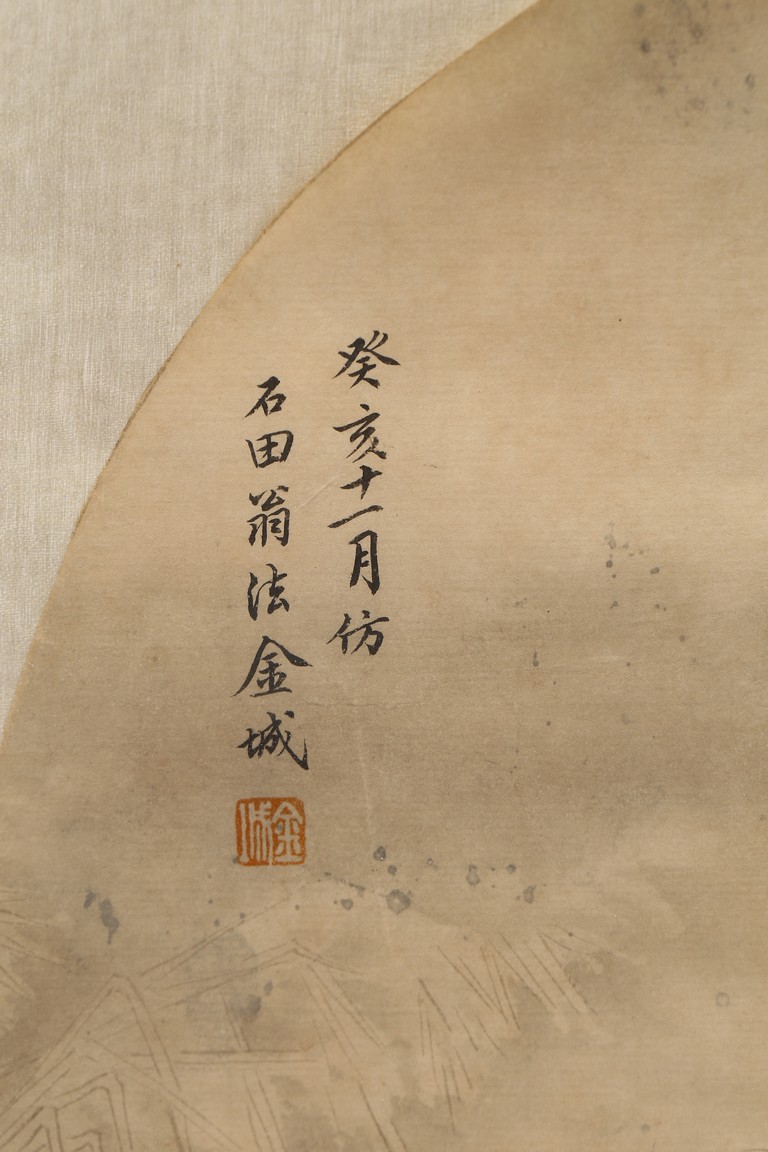 癸亥十一月仿
石田翁法金城
金城